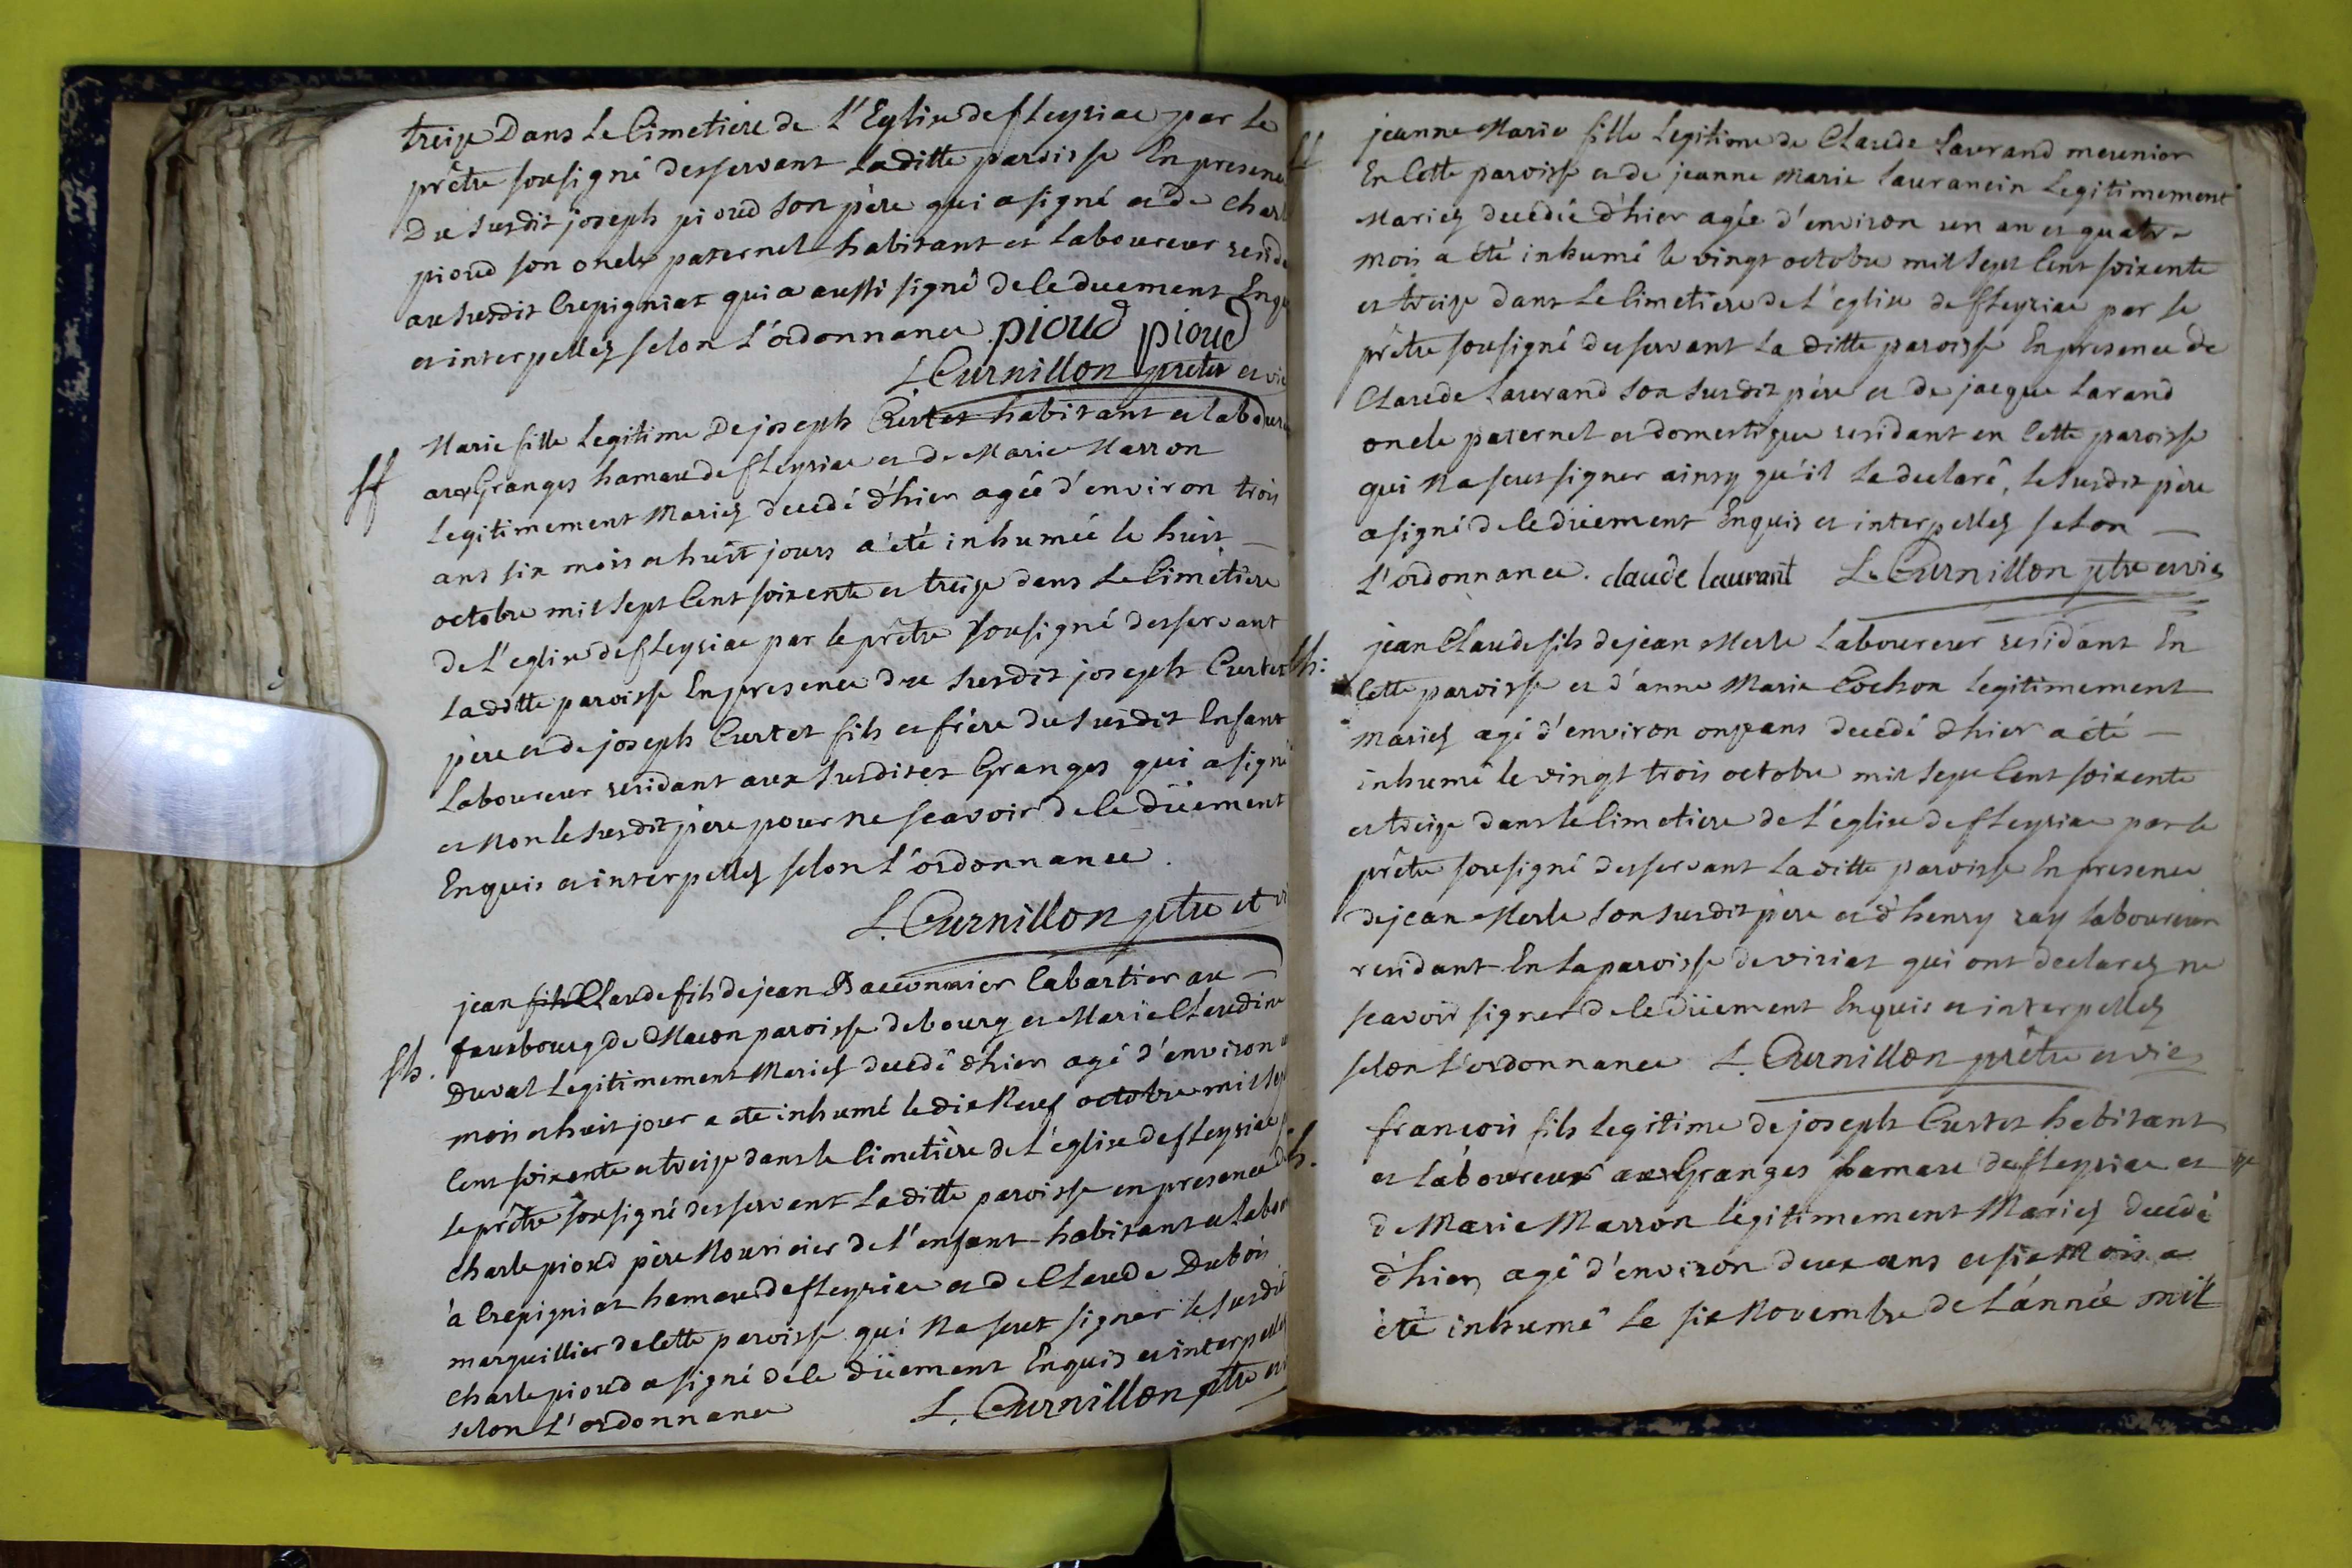 treize Dans Le Cimetiere de L'Eglise de fleyriac par Le
prêtre sousigné desservant Laditte paroisse En presence
Du susdit joseph pioud son père qui a signé et de Charl
pioud son oncle paternel habitant et Laboureur resid
au susdit Crepigniat qui a aussi signé de ce duement Enq
et interpellez selon L'ordonnance. pioud pioud
L. Curnillon prêtre et vic
ff
Marie fille Legitime De joseph Curtet habitant et Laboureur
aux Granges hameau de fleyriac et de Marie Marron
Legitimement Mariez decedé d'hier agée d'environ trois
ans six mois et huit jours a été inhumée le huit —
octobre mil sept Cent soixente et treize dans Le Cimetiere
de L'eglise de fleyriac par le prêtre sousigné desservant
La ditte paroisse En presence du susdit joseph Curtet
père et de joseph Curtet fils et frère du susdit Enfant
Laboureur residant aux susdites Granges qui a signé
et Non le susdit père pour ne scavoir de ce düement
Enquis et interpellez selon L'ordonnance.
L. Curnillon ptre et vi
fls.
jean fils Claude fils de jean Baconnier Cabartier au —
fauxbourg de Macon paroisse de bourg et Marie Claudine
Duval Legitimement Mariez decedé d'hier agé d'environ
mois et huit jour a eté inhumé le dix Neuf octobre mil sept
Cent soixente et treize dans le Cimetière de L'église de fleyriac p
Le prêtre sousigné desservent La ditte paroisse en presence de
Charle pioud père Nouricier de L'enfant habitant et Labou
à Crepigniat hameau de fleyriac et de Claude Dubois
marguillier de Cette paroisse qui Na sceut signer le susdit
Charle pioud a signé de ce düement Enquis et interpellez
selon L'ordonnance L. Curnillon ptre et
ff
jeanne Marie fille Legitime de Claude Laurand meunier
En Cette paroisse et de jeanne Marie Laurancin Legitimement
Mariez decedée d'hier agée d'environ un an et quatre
mois a été inhumé le vingt octobre mil sept Cent soixente
et treize dans Le Cimetiere de L'eglise de fleyriac par le
prêtre sousigné desservant La ditte paroisse En presence de
Claude Laurand son susdit père et de jacque Larand
oncle paternel et domestique residant en Cette paroisse
qui Na sceut signer ainsy qu'il La declaré, le susdit père
a signé de ce düement Enquis et interpellez selon —
L'ordonnance. claude laurant L. Curnillon ptre et vic
fls:
jean Claude fils de jean Merle Laboureur residant En
Cette paroisse et d'anne Marie Cochon legitimement
mariez agé d'environ onze ans decedé d'hier a été —
inhumé le vingt trois octobre mil sept Cent soixente
et treize dans le Cimetiere de L'église de fleyriac par le
prêtre sousigné desservant La ditte paroisse En presence
de jean Merle son susdit père et d'henry ray laboureur
residant En La paroisse de viriat qui ont declarez ne
scavoir signer de ce düement Enquis et interpellez
selon L'ordonnance L. Curnillon prêtre et vic
françois fils legitime de joseph Curtet habitant
et laboureur aux Granges hameau de fleyriac et
de Marie Marron légitimement Mariez decedé
d'hier agé d'environ deux ans et six Mois a
été inhumé Le six Novembre de L'année mil